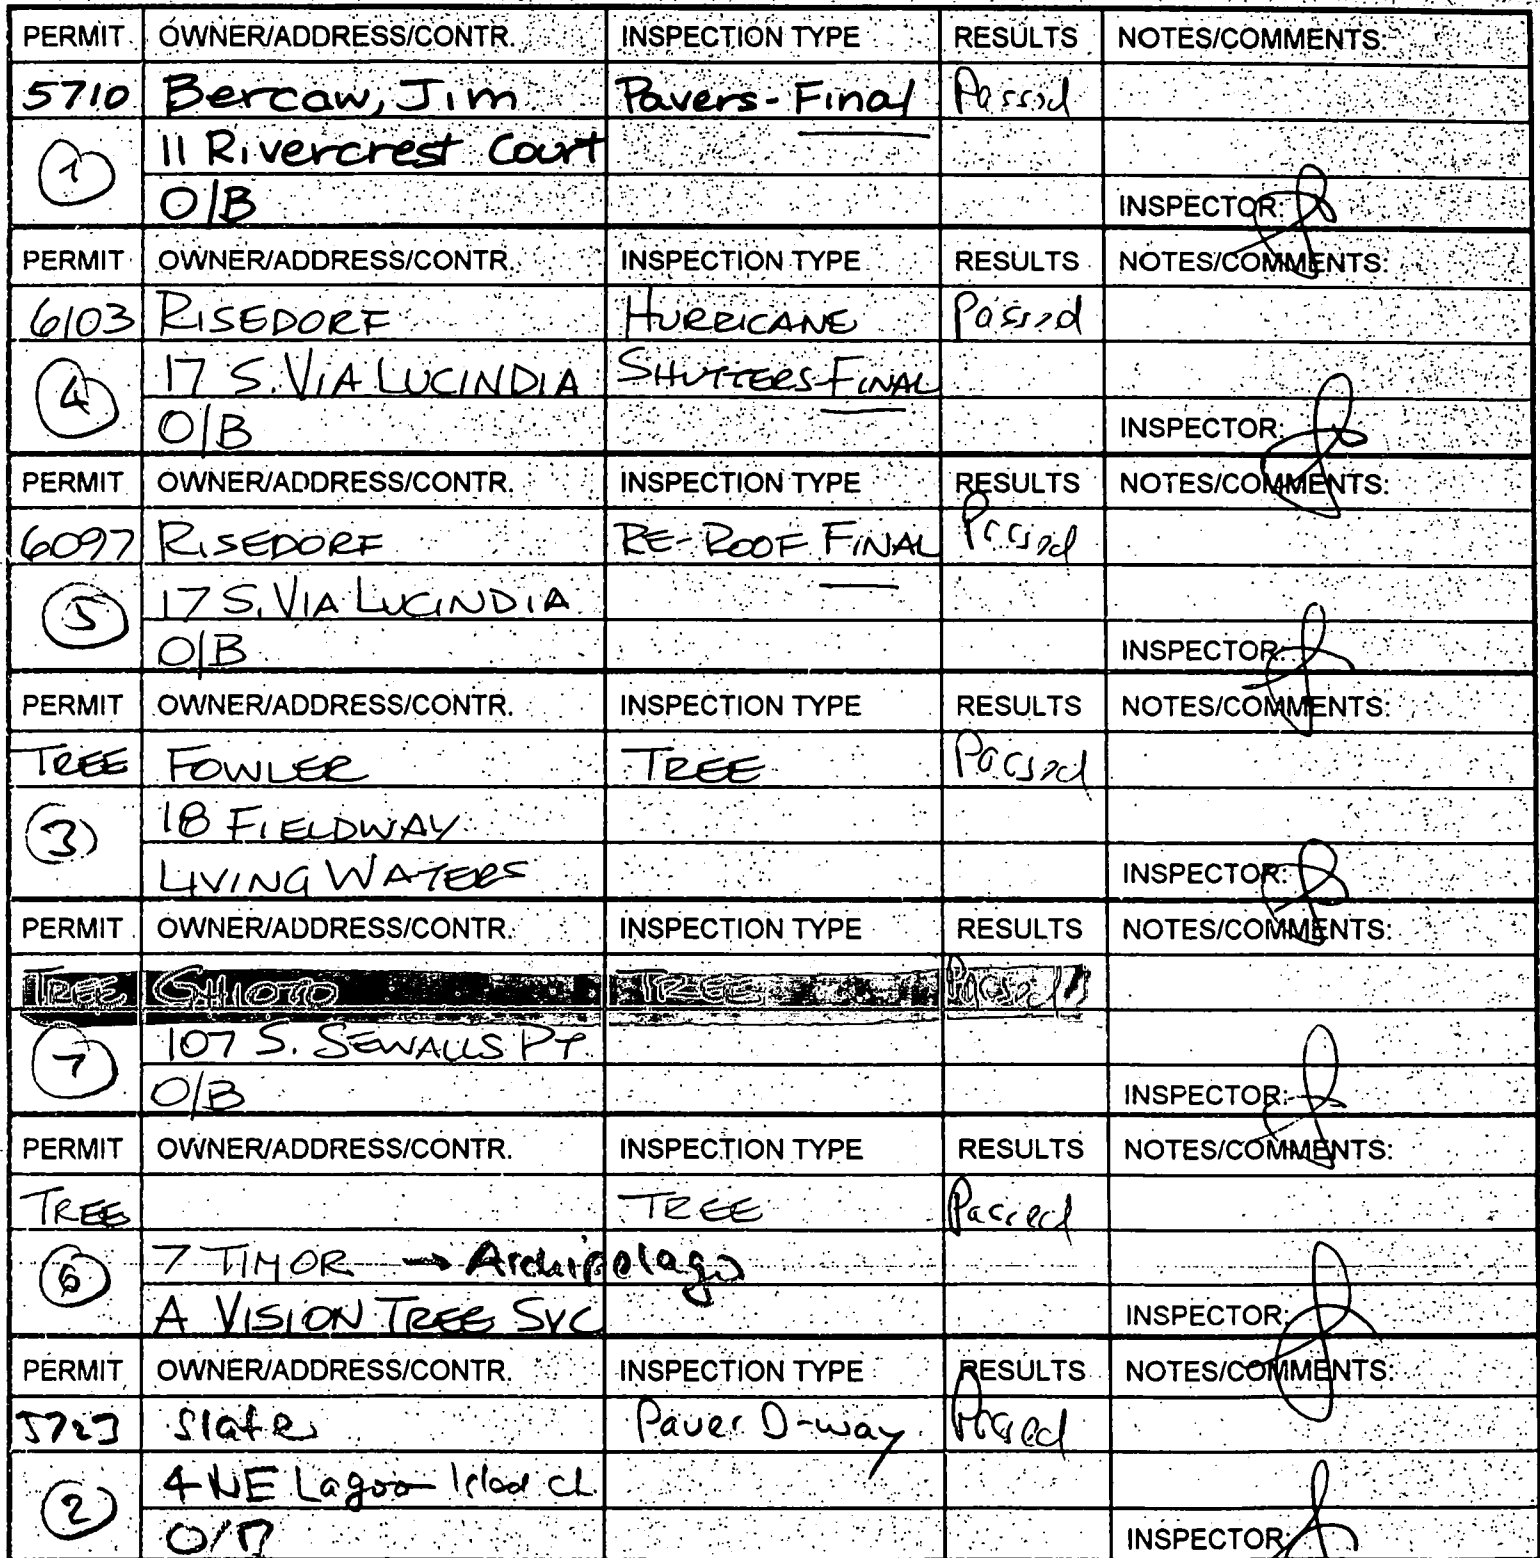 PERMIT OWNER/ADDRESS/CONTR. INSPECTION TYPE RESULTS NOTES/COMMENTS:
5710 Bercaw, Jim Pavers - Final Passed
1 11 Rivercrest Court
O/B INSPECTOR:
PERMIT OWNER/ADDRESS/CONTR. INSPECTION TYPE RESULTS NOTES/COMMENTS:
6103 RISEDORF HURRICANE Passed
4 17 S. VIA LUCINDIA SHUTTERS-FINAL
O/B INSPECTOR:
PERMIT OWNER/ADDRESS/CONTR. INSPECTION TYPE RESULTS NOTES/COMMENTS:
6097 RISEDORF RE-ROOF FINAL Passed
5 17 S. VIA LUCINDIA
O/B INSPECTOR:
PERMIT OWNER/ADDRESS/CONTR. INSPECTION TYPE RESULTS NOTES/COMMENTS:
TREE FOWLER TREE Passed
3 18 FIELDWAY
LIVING WATERS INSPECTOR:
PERMIT OWNER/ADDRESS/CONTR. INSPECTION TYPE RESULTS NOTES/COMMENTS:
TREE TREE Passed
7 107 S. SEWALLS PT
O/B INSPECTOR:
PERMIT OWNER/ADDRESS/CONTR. INSPECTION TYPE RESULTS NOTES/COMMENTS:
TREE TREE Passed
6 7 TIMOR → Archipelago
A VISION TREE SVC INSPECTOR:
PERMIT OWNER/ADDRESS/CONTR. INSPECTION TYPE RESULTS NOTES/COMMENTS:
5723 Slater Paver D-way Passed
2 4 NE Lagoon
INSPECTOR: